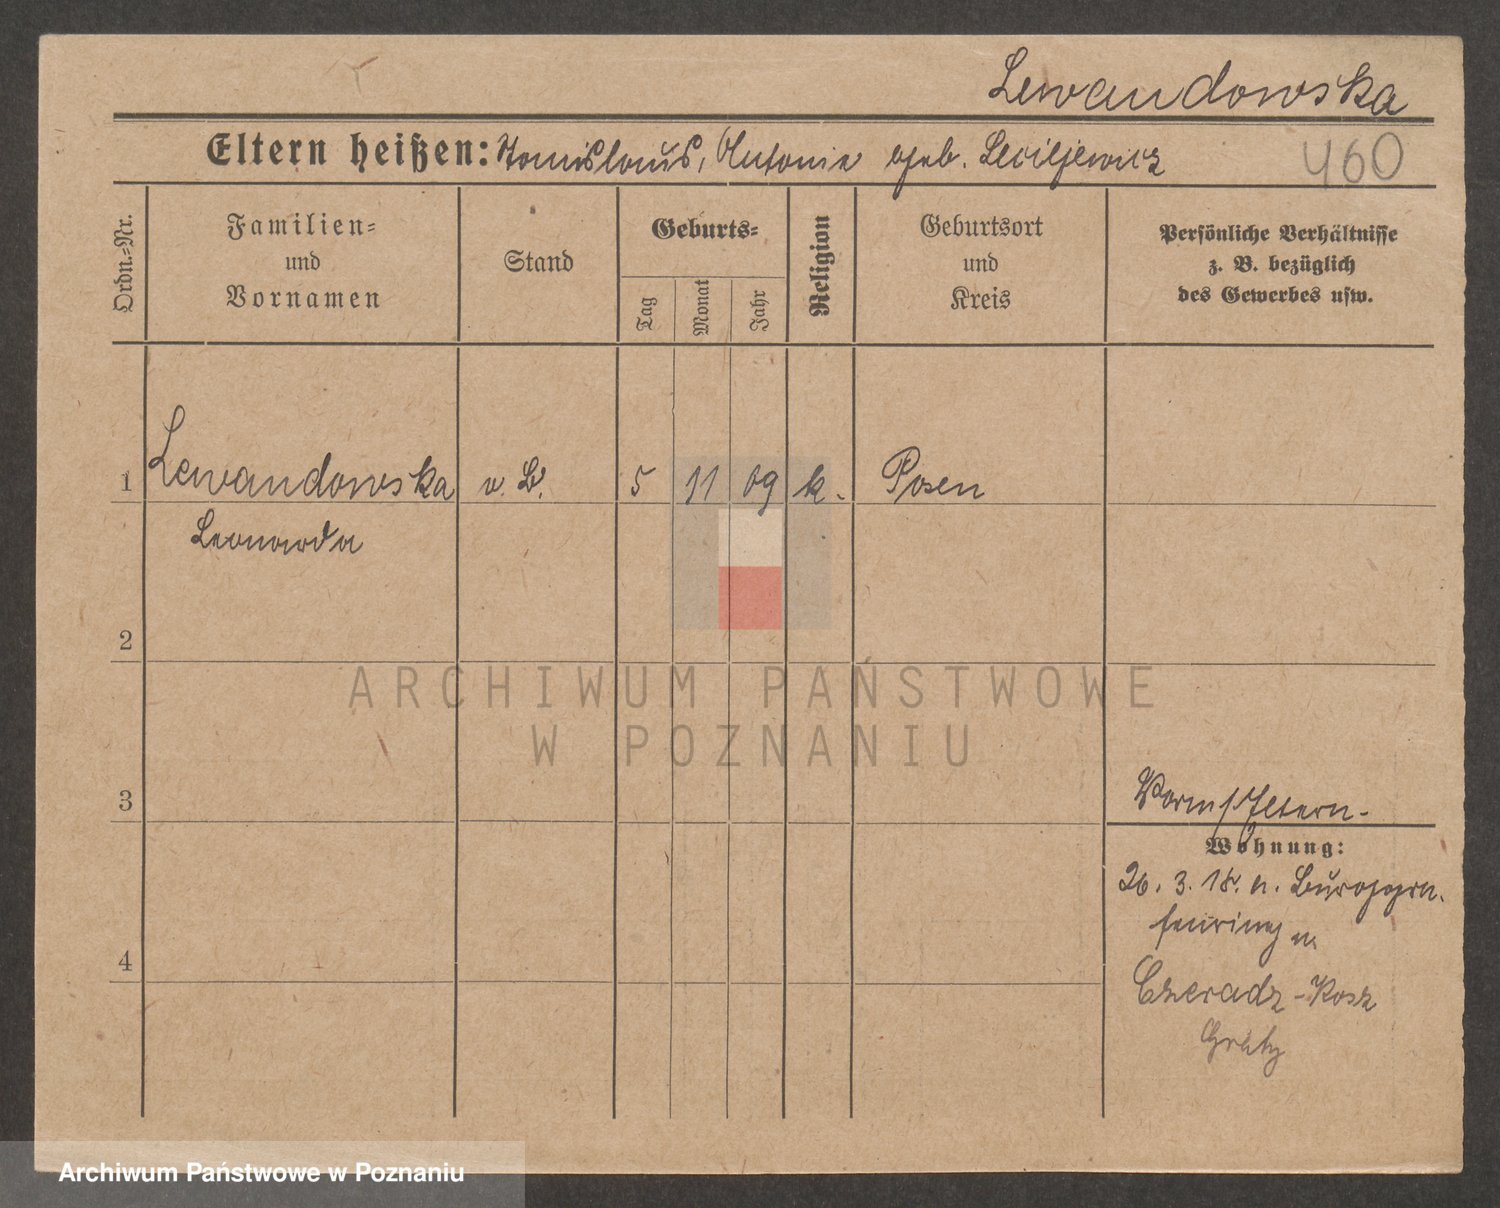 Lewandowska
Eltern heißen: Stanislaus, Antonie geb.
460
Ordn.-Nr.
Familien-
und
Vornamen
Stand
Geburts-
Tag
Monat
Jahr
Religion
Geburtsort
und
Kreis
Persönliche Verhältnisse
z. B. bezüglich
des Gewerbes usw.
1 Lewandowska o. B. 5 11 09 k. Posen
Leonarda
2
ARCHIWUM PAŃSTWOWE
W POZNANIU
3
Eltern-
Wohnung:
26. 3. 18. n.
4
Grätz
Archiwum Państwowe w Poznaniu